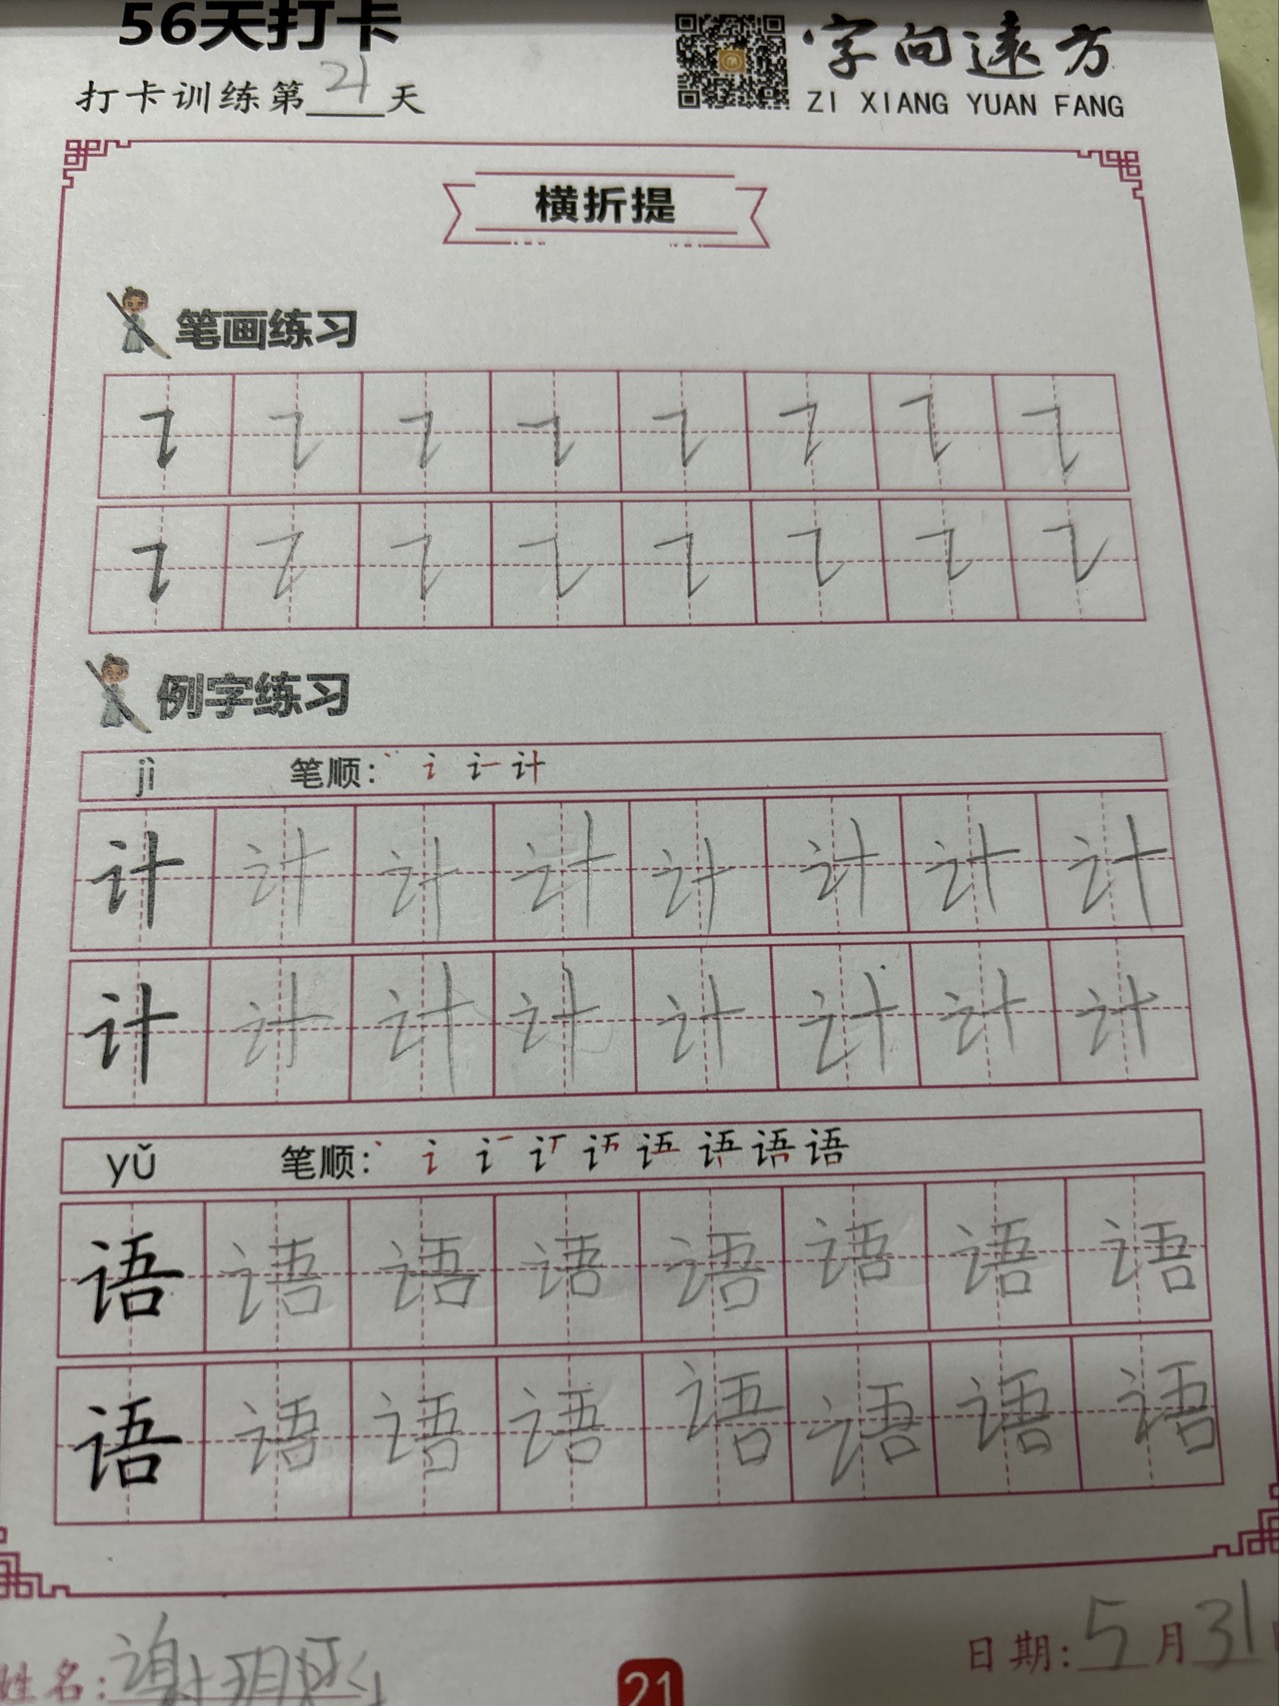 56天打卡
打卡训练第21天
字向远方
ZI XIANG YUAN FANG
横折提
笔画练习
例字练习
jì 笔顺：
计 计 计 计 计 计 计 计
计 计 计 计 计 计 计 计
yǔ 笔顺：
语 语 语 语 语 语 语 语
语 语 语 语 语 语 语 语
姓名：谢玥
21
日期：5月31